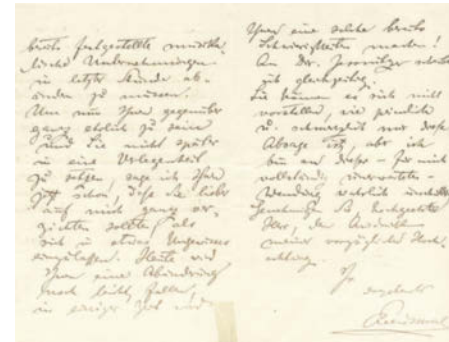 bereits festgestellte musika-
lische Unternehmungen
in letzter Stunde ab-
ändern zu müssen.
Um nun Ihnen gegenüber
ganz ehrlich zu sein
und Sie nicht später
in eine Verlegenheit
zu setzen, sage ich Ihnen
jetzt schon, dass Sie lieber
auf mich ganz ver-
zichten sollten als
sich in etwas Ungewisses
einzulassen. Heute wird
Ihnen eine Abänderung
noch leicht fallen,
in einiger Zeit wird
Ihnen eine solche bereits
Schwierigkeiten machen!
An Dr. schreibe
ich gleichzeitig.
Sie können es sich nicht
vorstellen, wie peinlich
u. schmerzlich mir diese
Absage ist, aber ich
bin an dieser – für mich
vollständig unerwarteten –
Wendung wahrlich unschuldig.
Genehmigen Sie, hochgeehrter
Herr, den Ausdruck
meiner vorzüglichen Hoch-
achtung.
Ihr
ergebenster